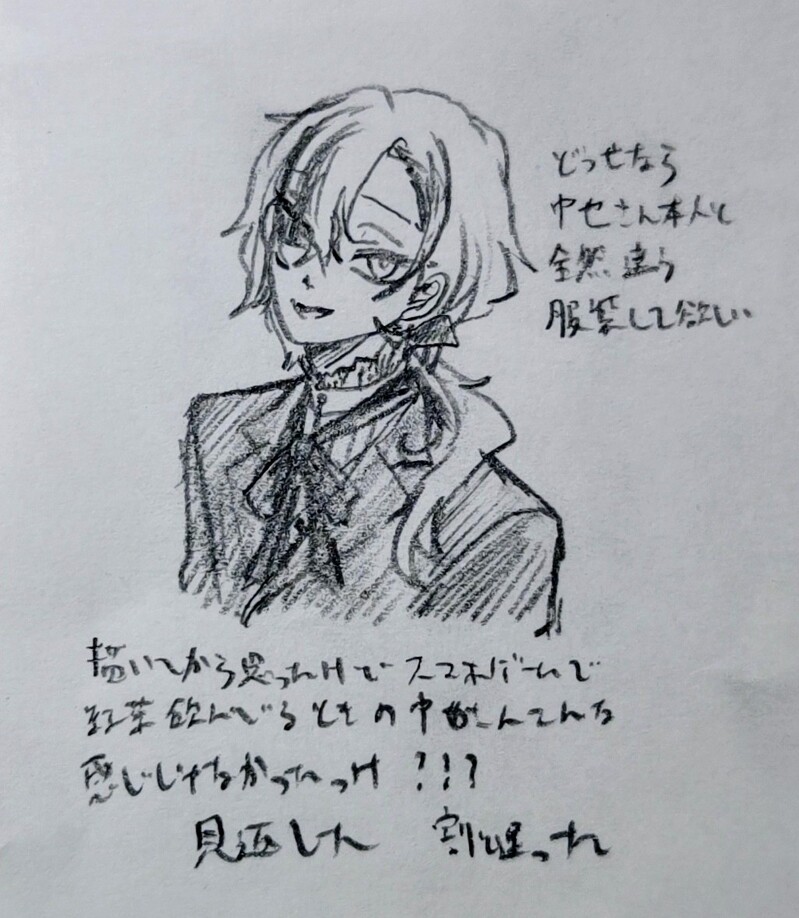 どっせなら
中也さん本人と
全然違う
服装して欲しい
描いてから思ったけどスマホゲームで
紅茶飲んでるときの中也こんな
感じじゃなかったっけ???
見返した 割と違った